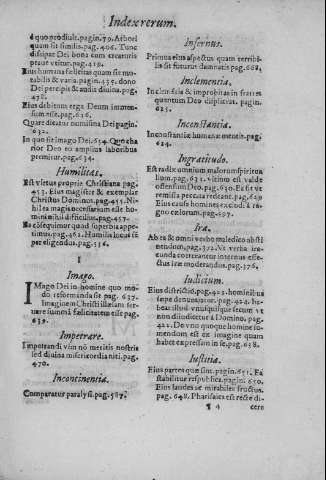 Index rerum.
è quo prodijt. pagin. 79. A theol
quam sit similis. pag. 406. Tunc
disipat Dei bona cum creaturis
praue vtitur. pag. 419.
Eius humana felicitas quam sit mu-
tabilis & varia. pagin. 439. dono
Dei percipit & audit diuina. pag.
478.
Eius debitum erga Deum immen-
sum est. pag. 626.
Quare dicatur numisma Dei pagin.
632.
In quo sit imago Dei. 634. Quo cha-
rior Deo eo amplius laboribus
premitur. pag. 634.
Humilitas.
Est virtus propria Christiana pag.
455. Eius magister & exemplar
Christus Dominus. pag. 455. Ni-
hil ea magis necessarium est ho-
mini nihil difficilius. pag. 457.
Ea consequimur quod superbia appe-
timus. pag. 462. Humilia loca sē
per eligendus. pag. 556.
I
Imago.
IMago Dei in homine quo mo-
do reformanda sit pag. 637.
Imaginem Christi illæsam ser-
uare summa fœlicitatem esse pag.
639.
Impetrare.
Impetrandi vim nō meritis nostris
sed diuina misericordia niti. pag.
470.
Incontinentia.
Comparatur paralysi. pag. 587.
Infernus.
Primus eius aspectus quam terribi-
lis sit futurus damnatis pag. 668.
Inclementia.
Inclemētia & improbitas in fratres
quantum Deo displiceat. pagin.
625.
Inconstantia.
Inconstantia humanæ mentis. pag.
624.
Ingratitudo.
Est radix omnium malorum spiritua
lium. pag. 625. vltimo est valde
offensum Deo. pag. 630. Ex sit vt
remissa peccata redeant. pag. 629
Eius causa homines excludi à re-
gno cœlorum. pag. 507.
Ira.
Ab ea & omni verbo maledico absti
nendum. pag. 372. Vt verba iræ
euanda correcerunt internus esse-
ctus iræ moderandus. pag. 376.
Iudicium.
Eius districtio. pag. 422. hominibus
sæpe denunciatur. pag. 424. ha-
bet illud vnusquisque secum 15
cum dijudicetur à Domino. pag.
422. De vno quoque homine so-
mendum est ex imferre. pag. 638.
Iustitia.
Eius partes quæ sint. pagin. 651. Ea
stabilitur respublica. pagin. 650.
Eius laudes & mirabiles fructus.
pag. 648. Pharisaica est recte di-
¶ 4 cere